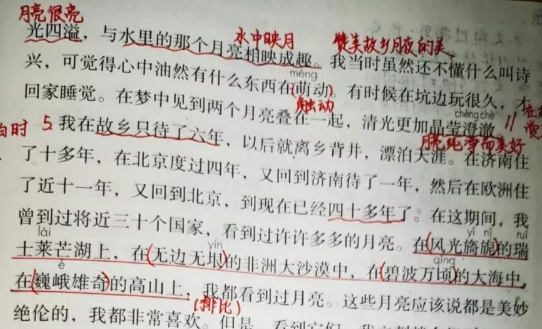 月亮很亮
光四溢，与水里的那个月亮相映成趣。
水中映月
赞美故乡月夜的美
我当时虽然还不懂什么叫诗
兴，可觉得心中油然有什么东西在萌动。有时候在坑边玩很久，才
méng
触动
回家睡觉。在梦中见到两个月亮叠在一起，清光更加晶莹澄澈。
chéng chè
月亮纯净而美好
5 我在故乡只待了六年，以后就离乡背井，漂泊天涯。在济南住
了十多年，在北京度过四年，又回到济南待了一年，然后在欧洲住
了近十一年，又回到北京，到现在已经四十多年了。在这期间，我
曾到过将近三十个国家，看到过许许多多的月亮。在(风光旖旎)的瑞
lái
yǐ nǐ
ruì
士莱芒湖上，在(无边无垠)的非洲大沙漠中，在(碧波万顷)的大海中，
yín
qǐng
é
在(巍峨雄奇)的高山上，我都看到过月亮。这些月亮应该说都是美妙
(排比)
绝伦的，我都非常喜欢。但是，看到它们